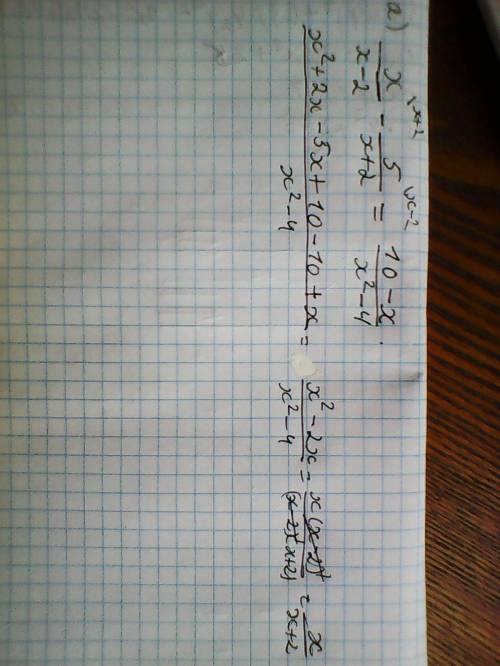 a)
x/(x-2) \x+2 - 5/(x+2) \x-2 = (10-x)/(x²-4).
(x²+2x-5x+10-10+x)/(x²-4) = (x²-2x)/(x²-4) = x(x-2)/((x-2)(x+2)) = x/(x+2)